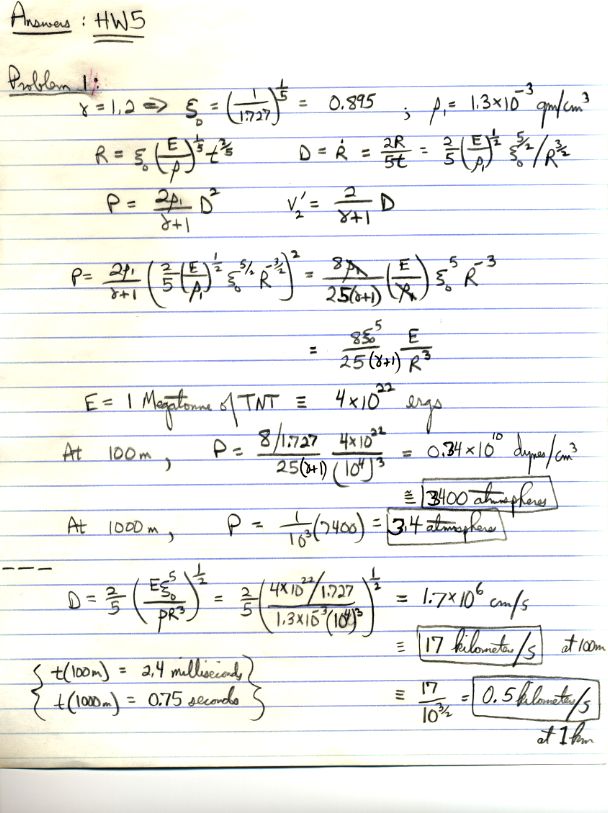 Answers : HW5
Problem 1:
γ = 1.2 => ξ₀ = (1/1.727)^(1/5) = 0.895 ; ρ₁ = 1.3×10⁻³ gm/cm³
R = ξ₀ (E/ρ)^(1/5) t^(2/5)   D = Ṙ = 2R/5t = 2/5 (E/ρ₁)^(1/2) ξ₀^(5/2) / R^(3/2)
P = 2ρ₁/(γ+1) D²   V₂' = 2/(γ+1) D
P = 2ρ₁/(γ+1) (2/5 (E/ρ₁)^(1/2) ξ₀^(5/2) R^(-3/2))² = 8ρ₁/25(γ+1) (E/ρ₁) ξ₀⁵ R⁻³
= 8ξ₀⁵/25(γ+1) E/R³
E = 1 Megatonne of TNT ≡ 4×10²² ergs
At 100 m, P = 8/1.727/25(γ+1) 4×10²²/(10⁴)³ = 0.34×10¹⁰ dynes/cm³
≅ 3400 atmospheres
At 1000 m, P = 1/10³ (3400) = 3.4 atmosphere
D = 2/5 (Eξ₀⁵/ρR³)^(1/2) = 2/5 (4×10²²/1.727/1.3×10⁻³(10⁴)³)^(1/2) = 1.7×10⁶ cm/s
≡ 17 kilometers/s at 100m
{ t(100m) = 2.4 milliseconds }
{ t(1000m) = 0.75 seconds }
≡ 17/10^(3/2) = 0.5 kilometers/s
at 1 km